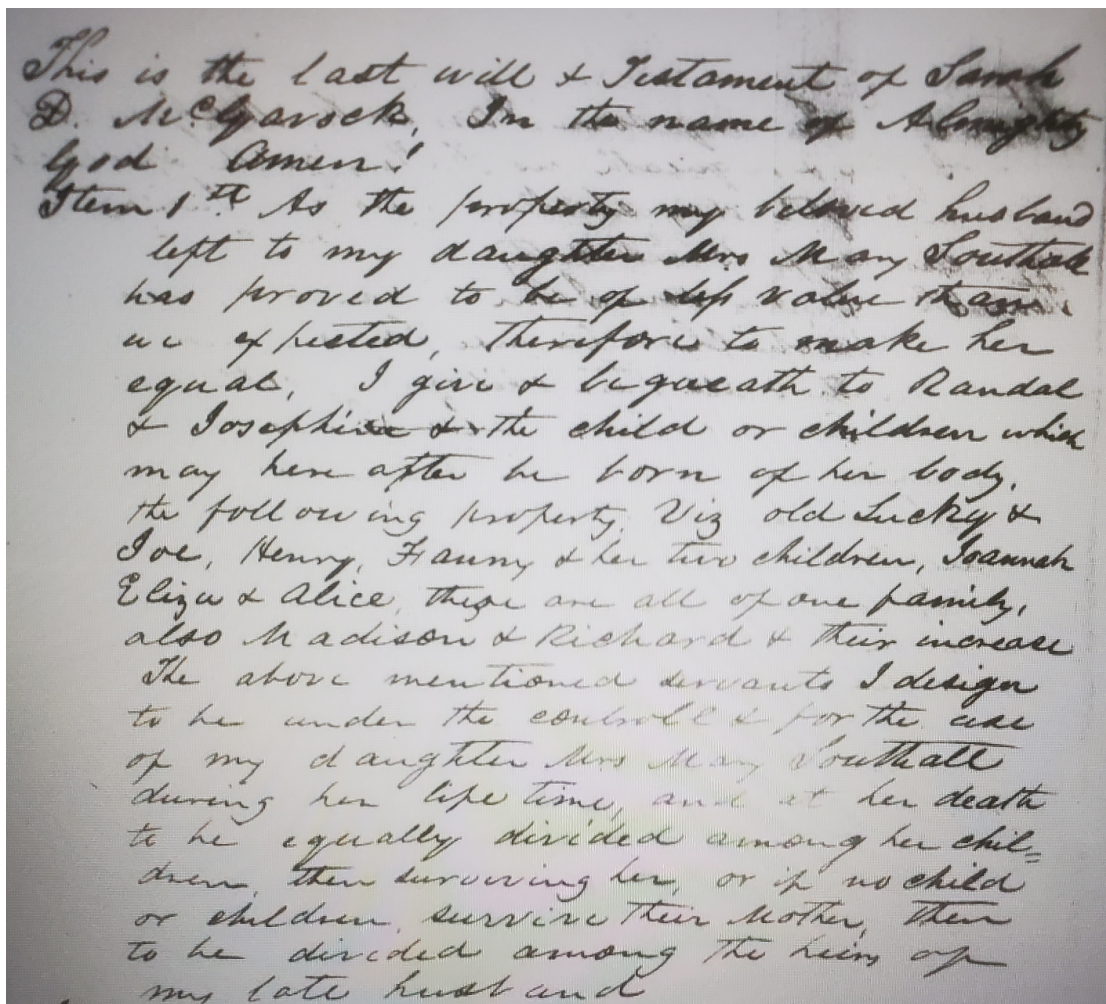 This is the last will & Testament of Sarah
D. McGavock, In the name of Almighty
God Amen!
Item 1st As the property my beloved husband
left to my daughter Mrs Mary Southall
has proved to be of less value than
we expected, therefore to make her
equal, I give & bequeath to Randal
& Josephine & the child or children which
may here after be born of her body,
the following property, Viz old Lucky &
Joe, Henry, Fanny & her two children, Joannah
Eliza & Alice, these are all of one family,
also Madison & Richard & their increase
The above mentioned servants I design
to be under the controll & for the use
of my daughter Mrs Mary Southall
during her life time, and at her death
to be equally divided among her chil=
dren, then surviving her, or if no child
or children survive their Mother, then
to be divided among the heirs of
my late husband